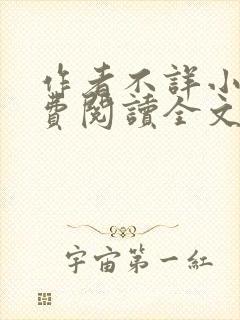 作者不詳小
費閱讀全文
宇宙第一紅